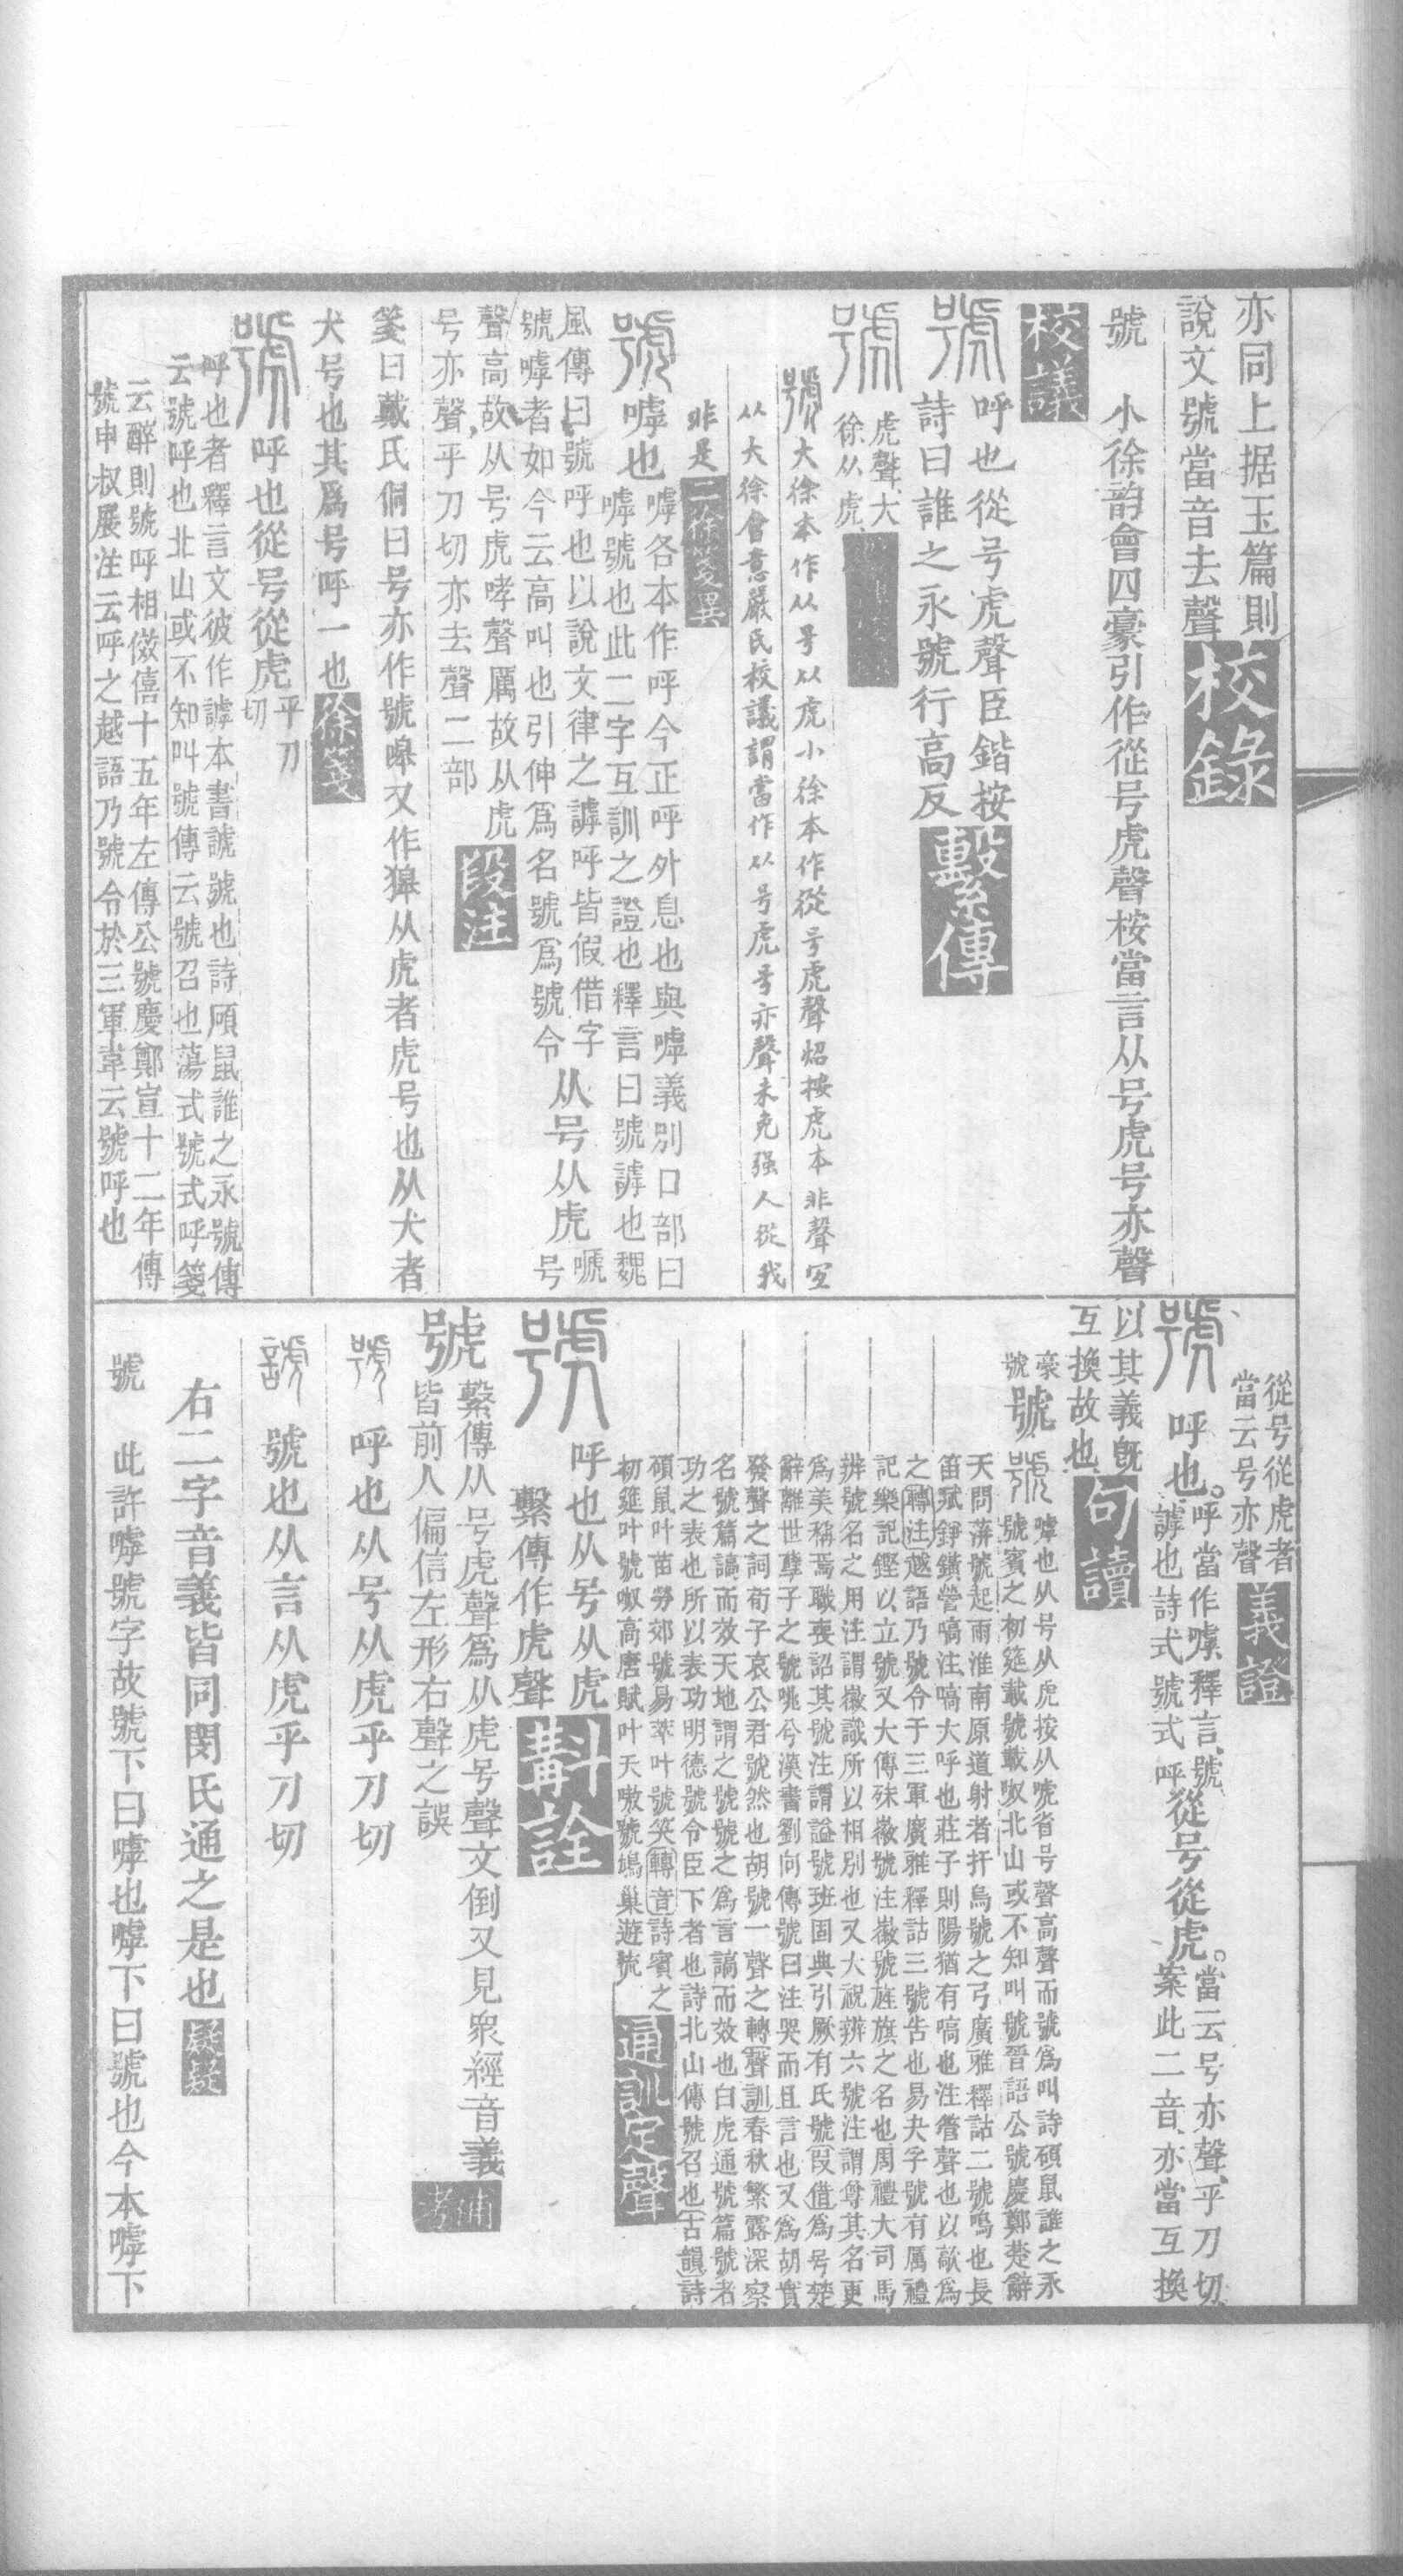 亦同上据玉篇則
說文號當音去聲校錄
號　小徐韵會四豪引作從号虎聲桉當言从号虎号亦聲
校議
號呼也從号虎聲臣鍇按
詩曰誰之永號行高反繫傳
號虎聲大
徐从虎
號大徐本作从号从虎小徐本作從号虎聲炤按虎本非聲宜
从大徐會意嚴氏校議謂當作从号虎号亦聲未免强人從我
非是二徐箋異
號嘑也嘑各本作呼今正呼外息也與嘑義別口部曰
嘑號也此二字互訓之證也釋言曰號謼也魏
風傳曰號呼也以說文律之謼呼皆假借字
號嘑者如今云高叫也引伸爲名號爲號令从号从虎嗁号
聲高故从号虎哮聲厲故从虎
号亦聲乎刀切亦去聲二部段注
箋曰戴氏侗曰号亦作號嘷又作獋从虎者虎号也从犬者
犬号也其爲号呼一也徐箋
號呼也從号從虎乎刀切
呼也者釋言文彼作謼本書謼號也詩碩鼠誰之永號傳
云號呼也北山或不知叫號傳云號召也蕩式號式呼箋
云醉則號呼相傚僖十五年左傳公號慶鄭宣十二年傳
號申叔展注云呼之越語乃號令於三軍韋云號呼也
從号從虎者
當云号亦聲義證
號呼也呼當作嘑釋言號
謼也詩式號式呼從号從虎當云号亦聲乎刀切
案此二音亦當互換
以其義旣
互換故也句讀
豪
號號號嘑也从号从虎按从唬省号聲高聲而號爲叫詩碩鼠誰之永
號賓之初筵載號載呶北山或不知叫號晉語公號慶鄭楚辭
天問蓱號起雨淮南原道射者扞烏號之弓廣雅釋詁二號鳴也長
笛賦錚鐄營嗃注嗃大呼也莊子則陽猶有嗃也注管聲也以歊爲
之轉注越語乃號令于三軍廣雅釋詁三號告也易夬孚號有厲禮
記樂記鏗以立號又大傳殊徽號注徽號旌旗之名也周禮大司馬
辨號名之用注謂徽識所以相別也又大祝辨六號注謂尊其名更
爲美稱焉職喪詔其號注謂謚號班固典引厥有氏號叚借爲号楚
辭離世孽子之號咷兮漢書劉向傳號曰注哭而且言也又爲胡實
發聲之詞荀子哀公君號然也胡號一聲之轉聲訓春秋繁露深察
名號篇謞而效天地謂之號號之爲言謞而效也白虎通號篇號者
功之表也所以表功明德號令臣下者也詩北山傳號召也古韻詩
碩鼠叶苗勞郊號易萃叶號笑轉音詩賓之
初筵叶號呶高唐賦叶天嗷號鳴巢遊㧞通訓定聲
號呼也从号从虎
繫傳作虎聲斠詮
號繫傳从号虎聲爲从虎号聲文倒又見衆經音義
皆前人偏信左形右聲之誤補考
號　呼也从号从虎乎刀切
諕　號也从言从虎乎刀切
右二字音義皆同閔氏通之是也疑疑
號　此許嘑號字故號下曰嘑也嘑下曰號也今本嘑下